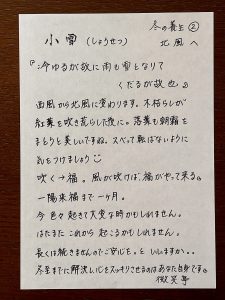 冬の養生②
小雪(しょうせつ) 北風へ
『冷ゆるが故に雨も雪となりて
くだるが故也』
西風から北風に変わります。木枯らしが
紅葉を吹き荒らした後に。落葉も朝霜を
まとうと美しいですね。スベって転ばないように
気をつけましょう
吹く→福。風が吹けば、福がやって来る。
一陽来福まで一ヶ月。
今色々起きて大変な時かもしれません。
はたまたこれから起こるかもしれません。
長くは続きませんのでご安心を。といいますか、、
冬至までに解決し心をスッキリさせるのはあなた自身です。
微笑亭